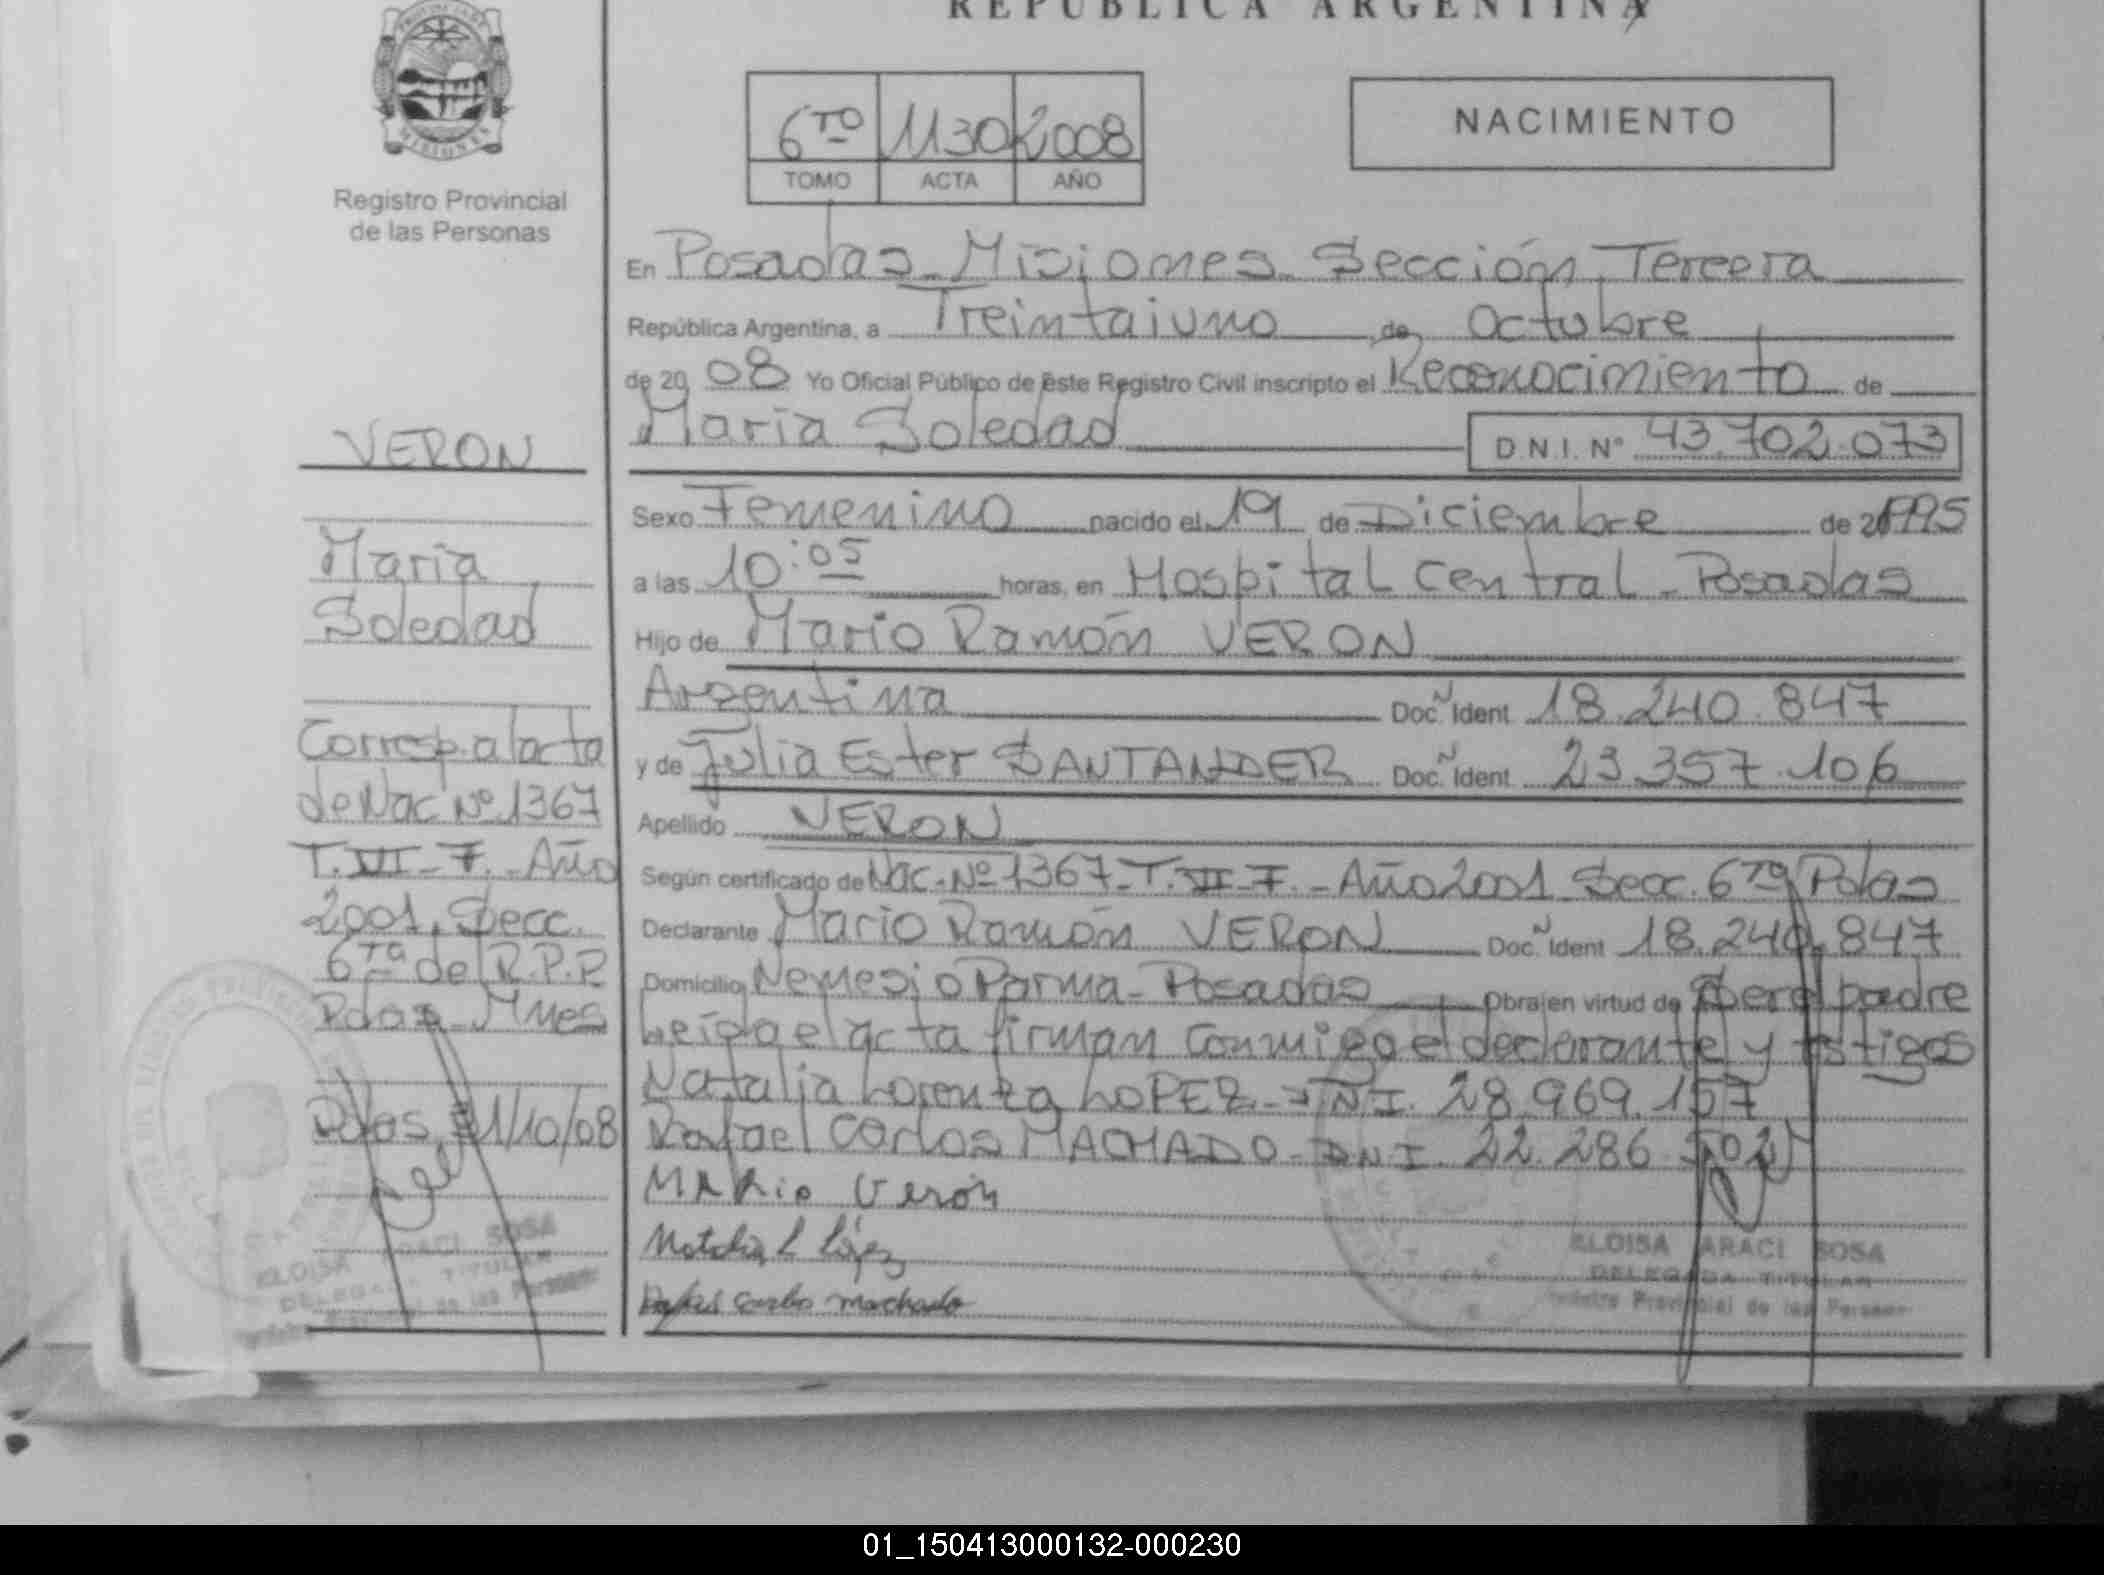 REPUBLICA ARGENTINA
PROVINCIA DE
MISIONES
Registro Provincial
de las Personas
6TO 1130 2008
TOMO ACTA AÑO
NACIMIENTO
En Posadas - Misiones - Sección Tercera
República Argentina, a Treintaiuno de Octubre
de 2008 Yo Oficial Público de este Registro Civil inscripto el Reconocimiento de
Maria Soledad D.N.I. Nº 43.702.073
Sexo Femenino nacido el 19 de Diciembre de 1995
a las 10:05 horas, en Hospital Central - Posadas
Hijo de Mario Ramón VERON
Argentina Doc. Ident 18.240.847
y de Julia Ester SANTANDER Doc. Ident 23.357.106
Apellido VERON
Según certificado de Nac. Nº 1367 - T. VII - F. - Año 2001 Secc. 6ta Pdas
Declarante Mario Ramón VERON Doc. Ident 18.240.847
Domicilio Nemesio Parma - Posadas Obra en virtud de Ser el padre
Leida el acta firman conmigo el declarante y testigos
Natalia Lorenza LOPEZ - DNI. 28.969.157
Rafael Carlos MACHADO - DNI. 22.286.502
Mario Verón
Natalia L López
Rafael Carlos Machado
ELOISA ARACI SOSA
DELEGADA TITULAR
Registro Provincial de las Personas
VERON
Maria
Soledad
Corresp. al acta
de Nac Nº 1367
T. VII - F. - Año
2001, Secc.
6ta de R.P.P
Pdas - Mnes
Pdas, 31/10/08
ELOISA ARACI SOSA
DELEGADA TITULAR
Registro Provincial de las Personas
01_150413000132-000230